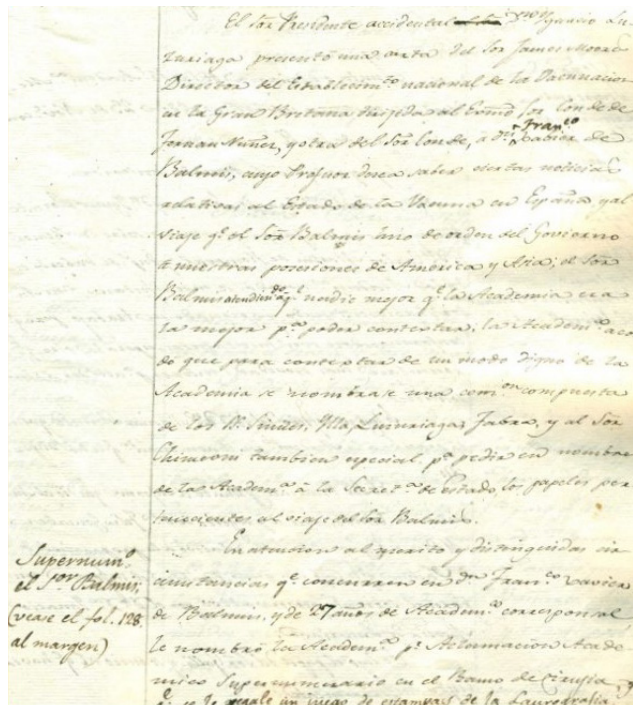 El Sor Presidente accidental Dn Ignacio Lu
zuriaga presentó una carta del Sor James Moore
Director del Establecimto nacional de la Vacunacion
en la Gran Bretaña dirijida al Exmo Sor Conde de
Fernan Nuñez, y otra del Sor Conde, a dn Franco Xabier de
Balmis, cuyo Profesor desea saber ciertas noticias
relativas al Estado de la Vacuna en España y al
viaje qe el Sor Balmis hizo de orden del Govierno
a nuestras posesiones de América y Asia; el Sor
Balmis atendiendo a qe nadie mejor qe la Academia era
la mejor pa poder contextar; la Academa acor
do que para contextar de un modo digno de la
Academia se nombrase una comon compuesta
de los Ss. Luzuriaga, Fabra, y al Sor
tambien especial pa pedir en nombre
de la Academa à la Secreta de Estado, los papeles per
tenecientes al viaje del Sor Balmis.
Supernumo
el Sor Balmis,
(vease el fol. 128
al margen)
En atencion al merito y distinguidas cir
cunstancias qe concurren en dn Franco Xavier
de Balmis, y de 27 años de Academco corresponsal,
le nombró la Academa pr Aclamacion Acade
mico Supernumerario en el Ramo de Cirugia y
qe se le regale un juego de estampas de la